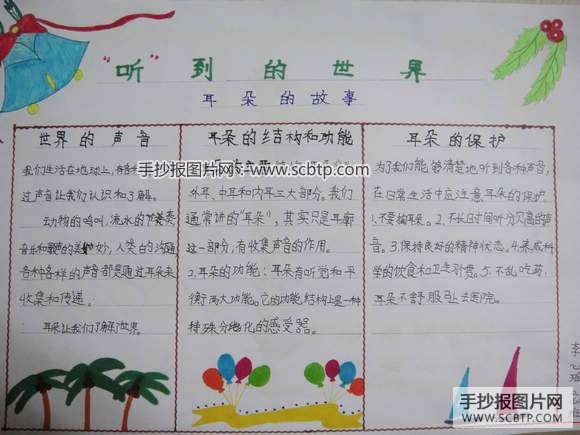 "听"到的世界
耳朵的故事
世界的声音
我们生活在地球上,有各种
过声音让我们认识和了解。
动物的鸣叫,流水的
音乐和歌声的美妙,人笑的沟通
各种各样的声音都是通过耳朵来
收集和传递。
耳朵让我们了解了世界。
耳朵的结构和功能
外耳、中耳和内耳三大部分。我们
通常讲的"耳朵",其实只是耳廓
这一部分,有收集声音的作用。
2.耳朵的功能:耳朵有听觉和平
衡两大功能。它的功能结构上是一种
特殊分化的感受器。
耳朵的保护
为了我们能够清楚地听到各种声音,
在日常生活中应注意耳朵的保护。
1.不要掏耳朵。2.不长时间听分贝高的声
音。3.保持良好的精神状态。4.养成科
学的饮食和卫生习惯。5.不乱吃药,
耳朵不舒服马上去医院。
手抄报图片网:www.scbtp.com
www.scbtp.com
手抄报图片网
WWW.SCBTP.COM